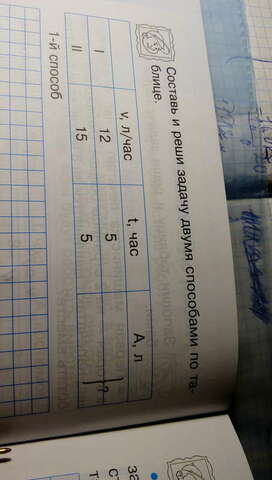 Составь и реши задачу двумя способами по та-
блице.
v, л/час t, час A, л
I 12 5 ?
II 15 5
1-й способ